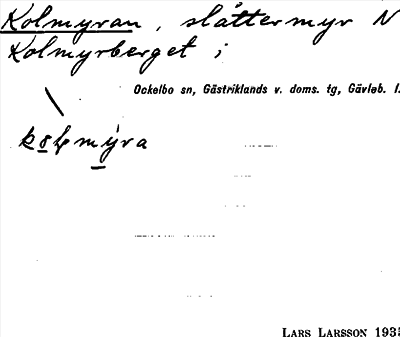 Kolmyran, slåttermyr N
Kolmyrberget;
Ockelbo sn, Gästriklands v. doms. tg, Gävleb. l.
LARS LARSSON 1935